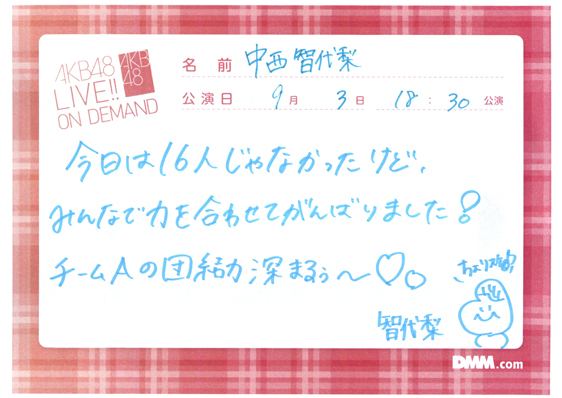 AKB48
LIVE!!
ON DEMAND
AKB
48
名前 中西智代梨
公演日 9月 3日 18:30 公演
今日は16人じゃなかったけど、
みんなで力を合わせてがんばりました!
チームAの団結力深まるぅ〜♡。
智代梨
DMM.com